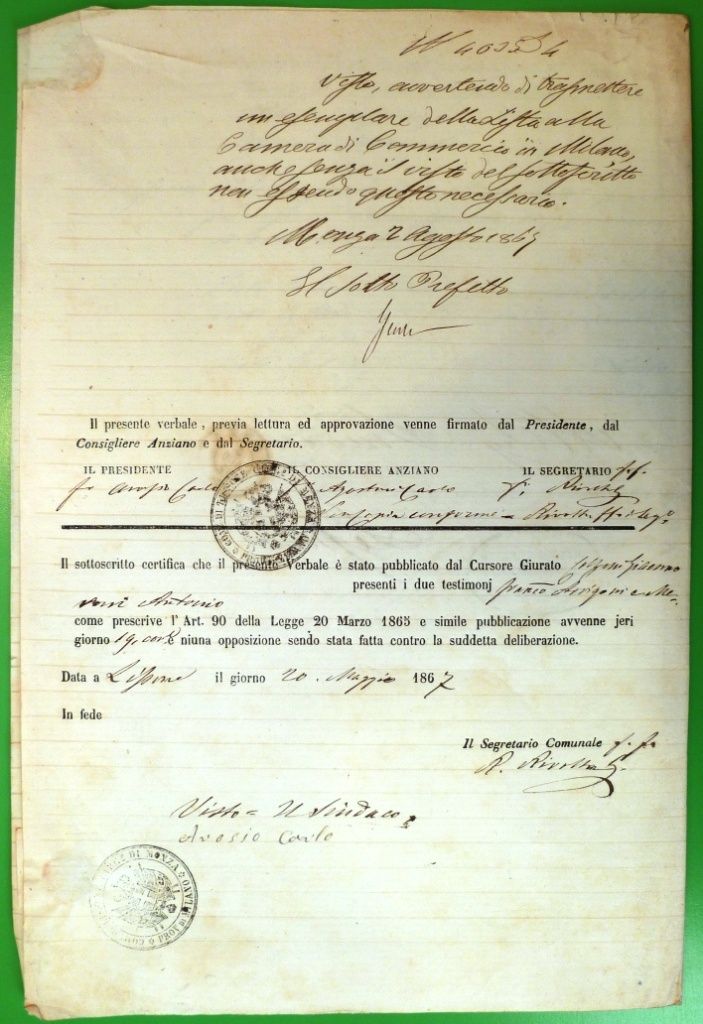 N 4035/4
Visto, avvertendo di trasmettere
un esemplare della Lista alla
Camera di Commercio in Milano,
anche senza il visto del sottoscritto
non essendo questo necessario.
Monza 2 Agosto 1867
Il Sotto Prefetto
Il presente verbale, previa lettura ed approvazione venne firmato dal Presidente, dal
Consigliere Anziano e dal Segretario.
IL PRESIDENTE IL CONSIGLIERE ANZIANO IL SEGRETARIO ff.
f.° Arosio Carlo Agostoni Carlo f.° Rivolta
conforme = Rivolta ff. di Seg.°
Il sottoscritto certifica che il presente Verbale è stato pubblicato dal Cursore Giurato
presenti i due testimonj Franc.° Arrigoni e
Antonio
come prescrive l'Art. 90 della Legge 20 Marzo 1865 e simile pubblicazione avvenne jeri
giorno 19. corr.e e niuna opposizione sendo stata fatta contro la suddetta deliberazione.
Data a Lissone il giorno 20. Maggio 1867
In fede
Il Segretario Comunale f. f.
R. Rivolta
Visto = Il Sindaco
Arosio Carlo
DI MONZA PROV DI MILANO